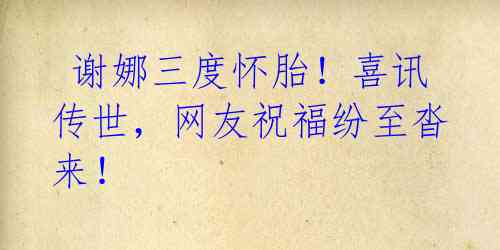 谢娜三度怀胎！喜讯
传世，网友祝福纷至沓
来！